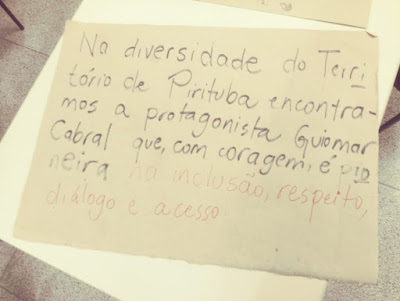 Na diversidade do Terri
tório de Pirituba encontra-
mos a protagonista Guiomar
Cabral que, com coragem, é pio
neira na inclusão, respeito,
diálogo e acesso